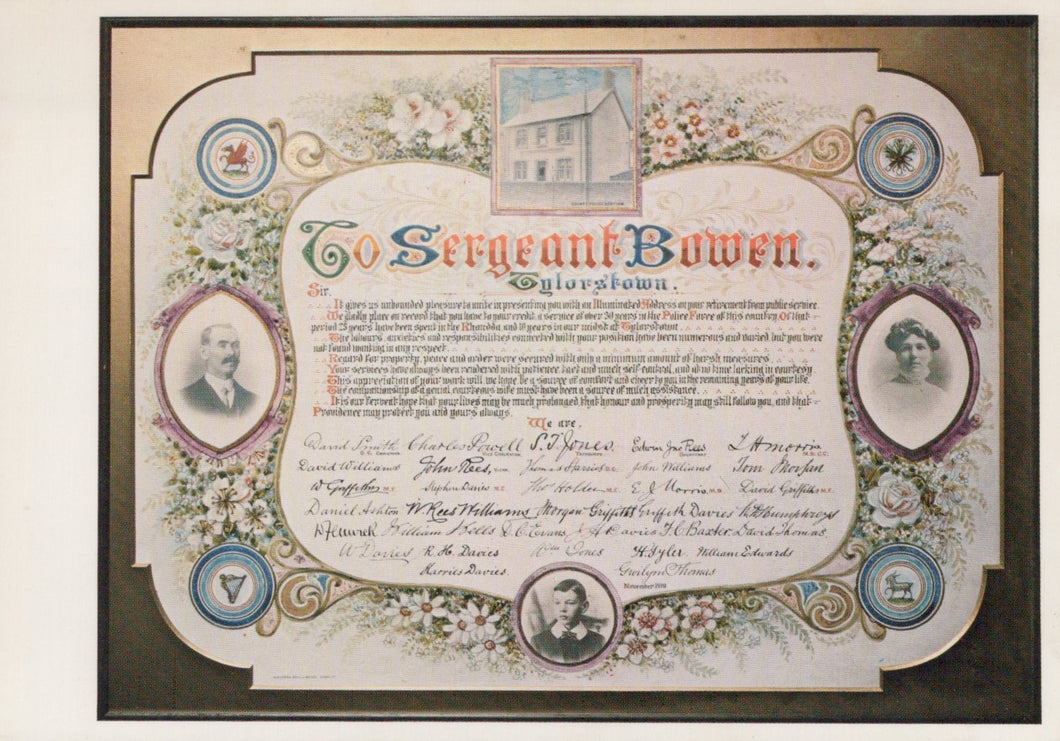 COUNTY POLICE STATION
To Sergeant Bowen.
Tylorstown.
Sir.
It gives us unbounded pleasure to unite in presenting you with an Illuminated Address on your retirement from public service.
We gladly place on record that you have to your credit a service of over 30 years in the Police Force of this country. Of that
period 25 years have been spent in the Rhondda, and 18 years in our midst at Tylorstown
The labours, anxieties and responsibilities connected with your position have been numerous and varied but you were
not found wanting in any respect
Regard for property, peace and order were secured with only a minimum amount of harsh measures
Your services have always been rendered with patience tact and much self-control, and at no time lacking in courtesy
This appreciation of your work will we hope be a source of comfort and cheer to you in the remaining years of your life.
The companionship of a genial courteous wife must have been a source of much assistance.
It is our fervent hope that your lives may be much prolonged, that honour and prosperity may still follow you, and that
Providence may protect you and yours always.
We are,
David Smith Charles Powell S. T. Jones Edwin Rees T H Morris
David Williams John Rees, Thomas Harris John Williams Tom Morgan
W Griffiths Stephen Davies M.E. Thos Holden M.E. E. J. Morris M.B. David Griffiths M.E.
Daniel Ashton W Rees Williams Morgan Griffiths Griffith Davies Humphreys
Fenwick William Wells D. C. Evans Davies F. C. Baxter David Thomas
W Davies R. H. Davies Wm Jones H. Tyler William Edwards
Harries Davies. Gwilym Thomas
November